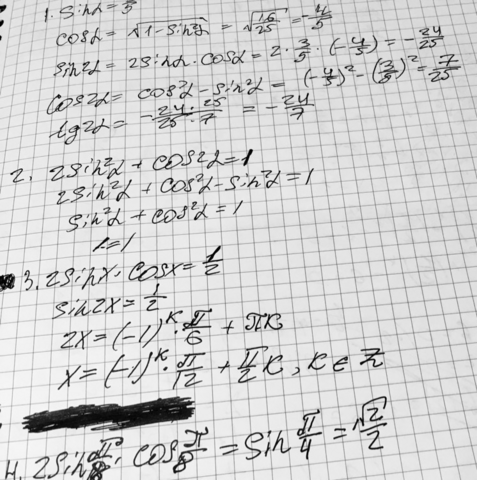 1. sinα = 3/5
cosα = √(1-sin²α) = √(16/25) = -4/5
sin2α = 2sinα·cosα = 2·3/5·(-4/5) = -24/25
cos2α = cos²α - sin²α = (-4/5)² - (3/5)² = 7/25
tg2α = -24·25/25·7 = -24/7
2. 2sin²α + cos2α = 1
2sin²α + cos²α - sin²α = 1
sin²α + cos²α = 1
1 = 1
3. 2sinx·cosx = 1/2
sin2x = 1/2
2x = (-1)ᴷ·π/6 + πk
x = (-1)ᴷ·π/12 + π/2 k, k ∈ Z
4. 2sin π/8 · cos π/8 = sin π/4 = √2/2